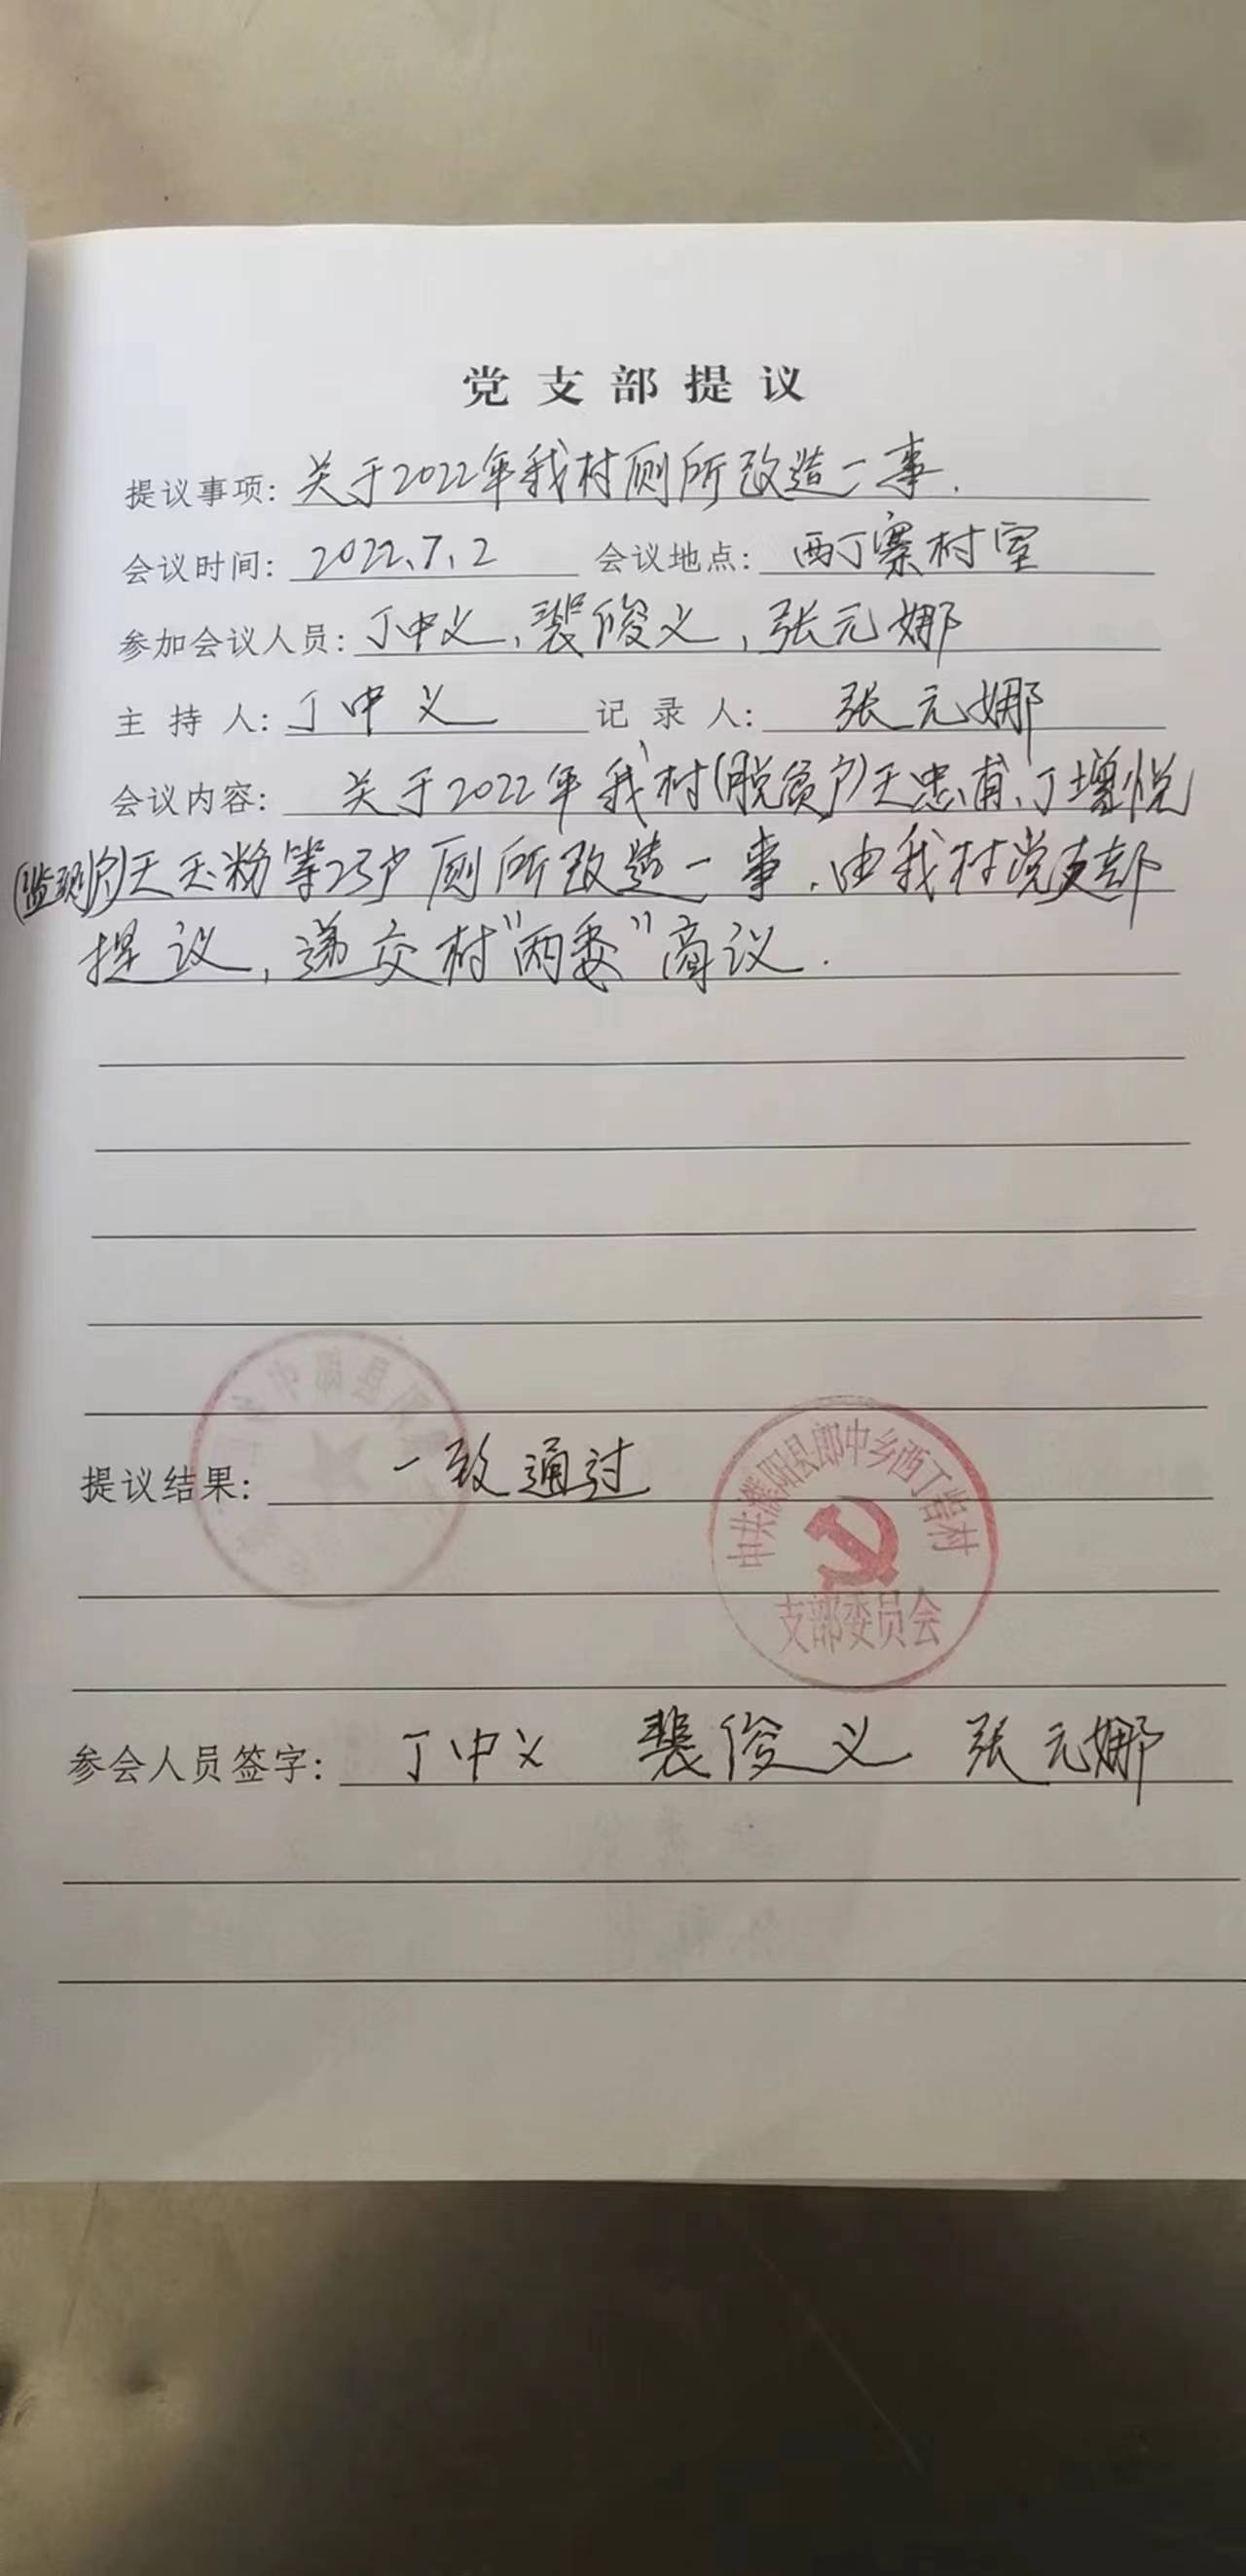 党支部提议
提议事项: 关于2022年我村厕所改造一事.
会议时间: 2022、7、2 会议地点: 西丁寨村室
参加会议人员: 丁中义, 裴俊义, 张元娜
主持人: 丁中义 记录人: 张元娜
会议内容: 关于2022年我村(脱贫户)王忠甫、丁增悦
(监测户)王玉粉等23户厕所改造一事, 由我村党支部
提议, 递交村“两委”商议.
提议结果: 一致通过
中共濮阳县郎中乡西丁砦村
支部委员会
参会人员签字: 丁中义 裴俊义 张元娜